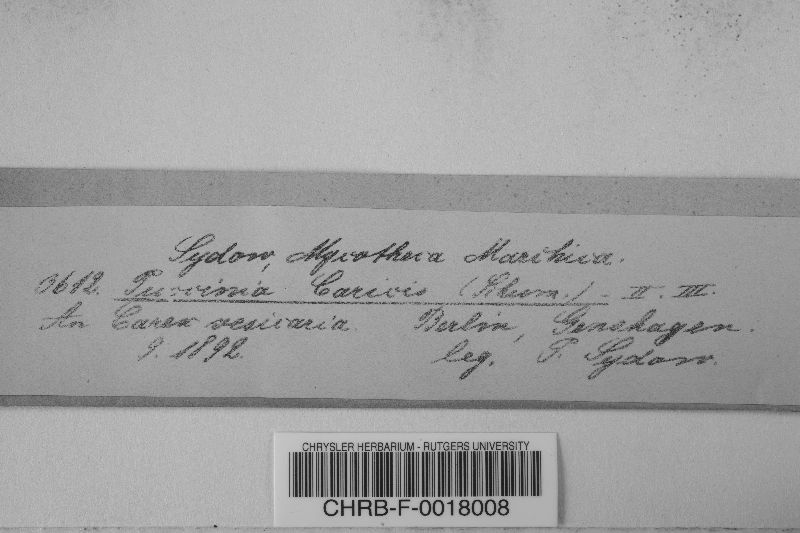 Sydow, Mycotheca Marchica.
3612. Puccinia Caricis (Schum.) - II. III.
An Carex vesicaria. Berlin, Genshagen.
9. 1892. leg. P. Sydow.
CHRYSLER HERBARIUM - RUTGERS UNIVERSITY
CHRB-F-0018008